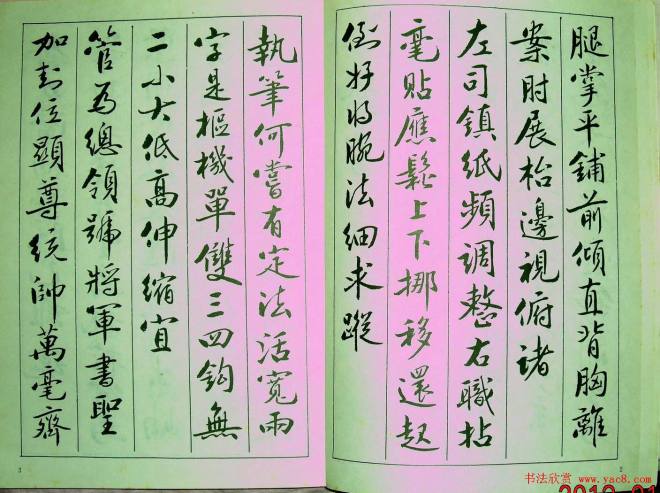 腿掌平鋪前傾直背胸離
案肘展枱邊視俯諸
左司鎮紙頻調整右職拈
毫貼應鬆上下挪移還起
倒好將腕法細求蹤
2
執筆何嘗有定法活寬兩
字是樞機單雙三四鈎無
二小大低高伸縮宜
管為總領號將軍書聖
加封位顯尊統帥萬毫齊
3
书法欣赏
www.yac8.com